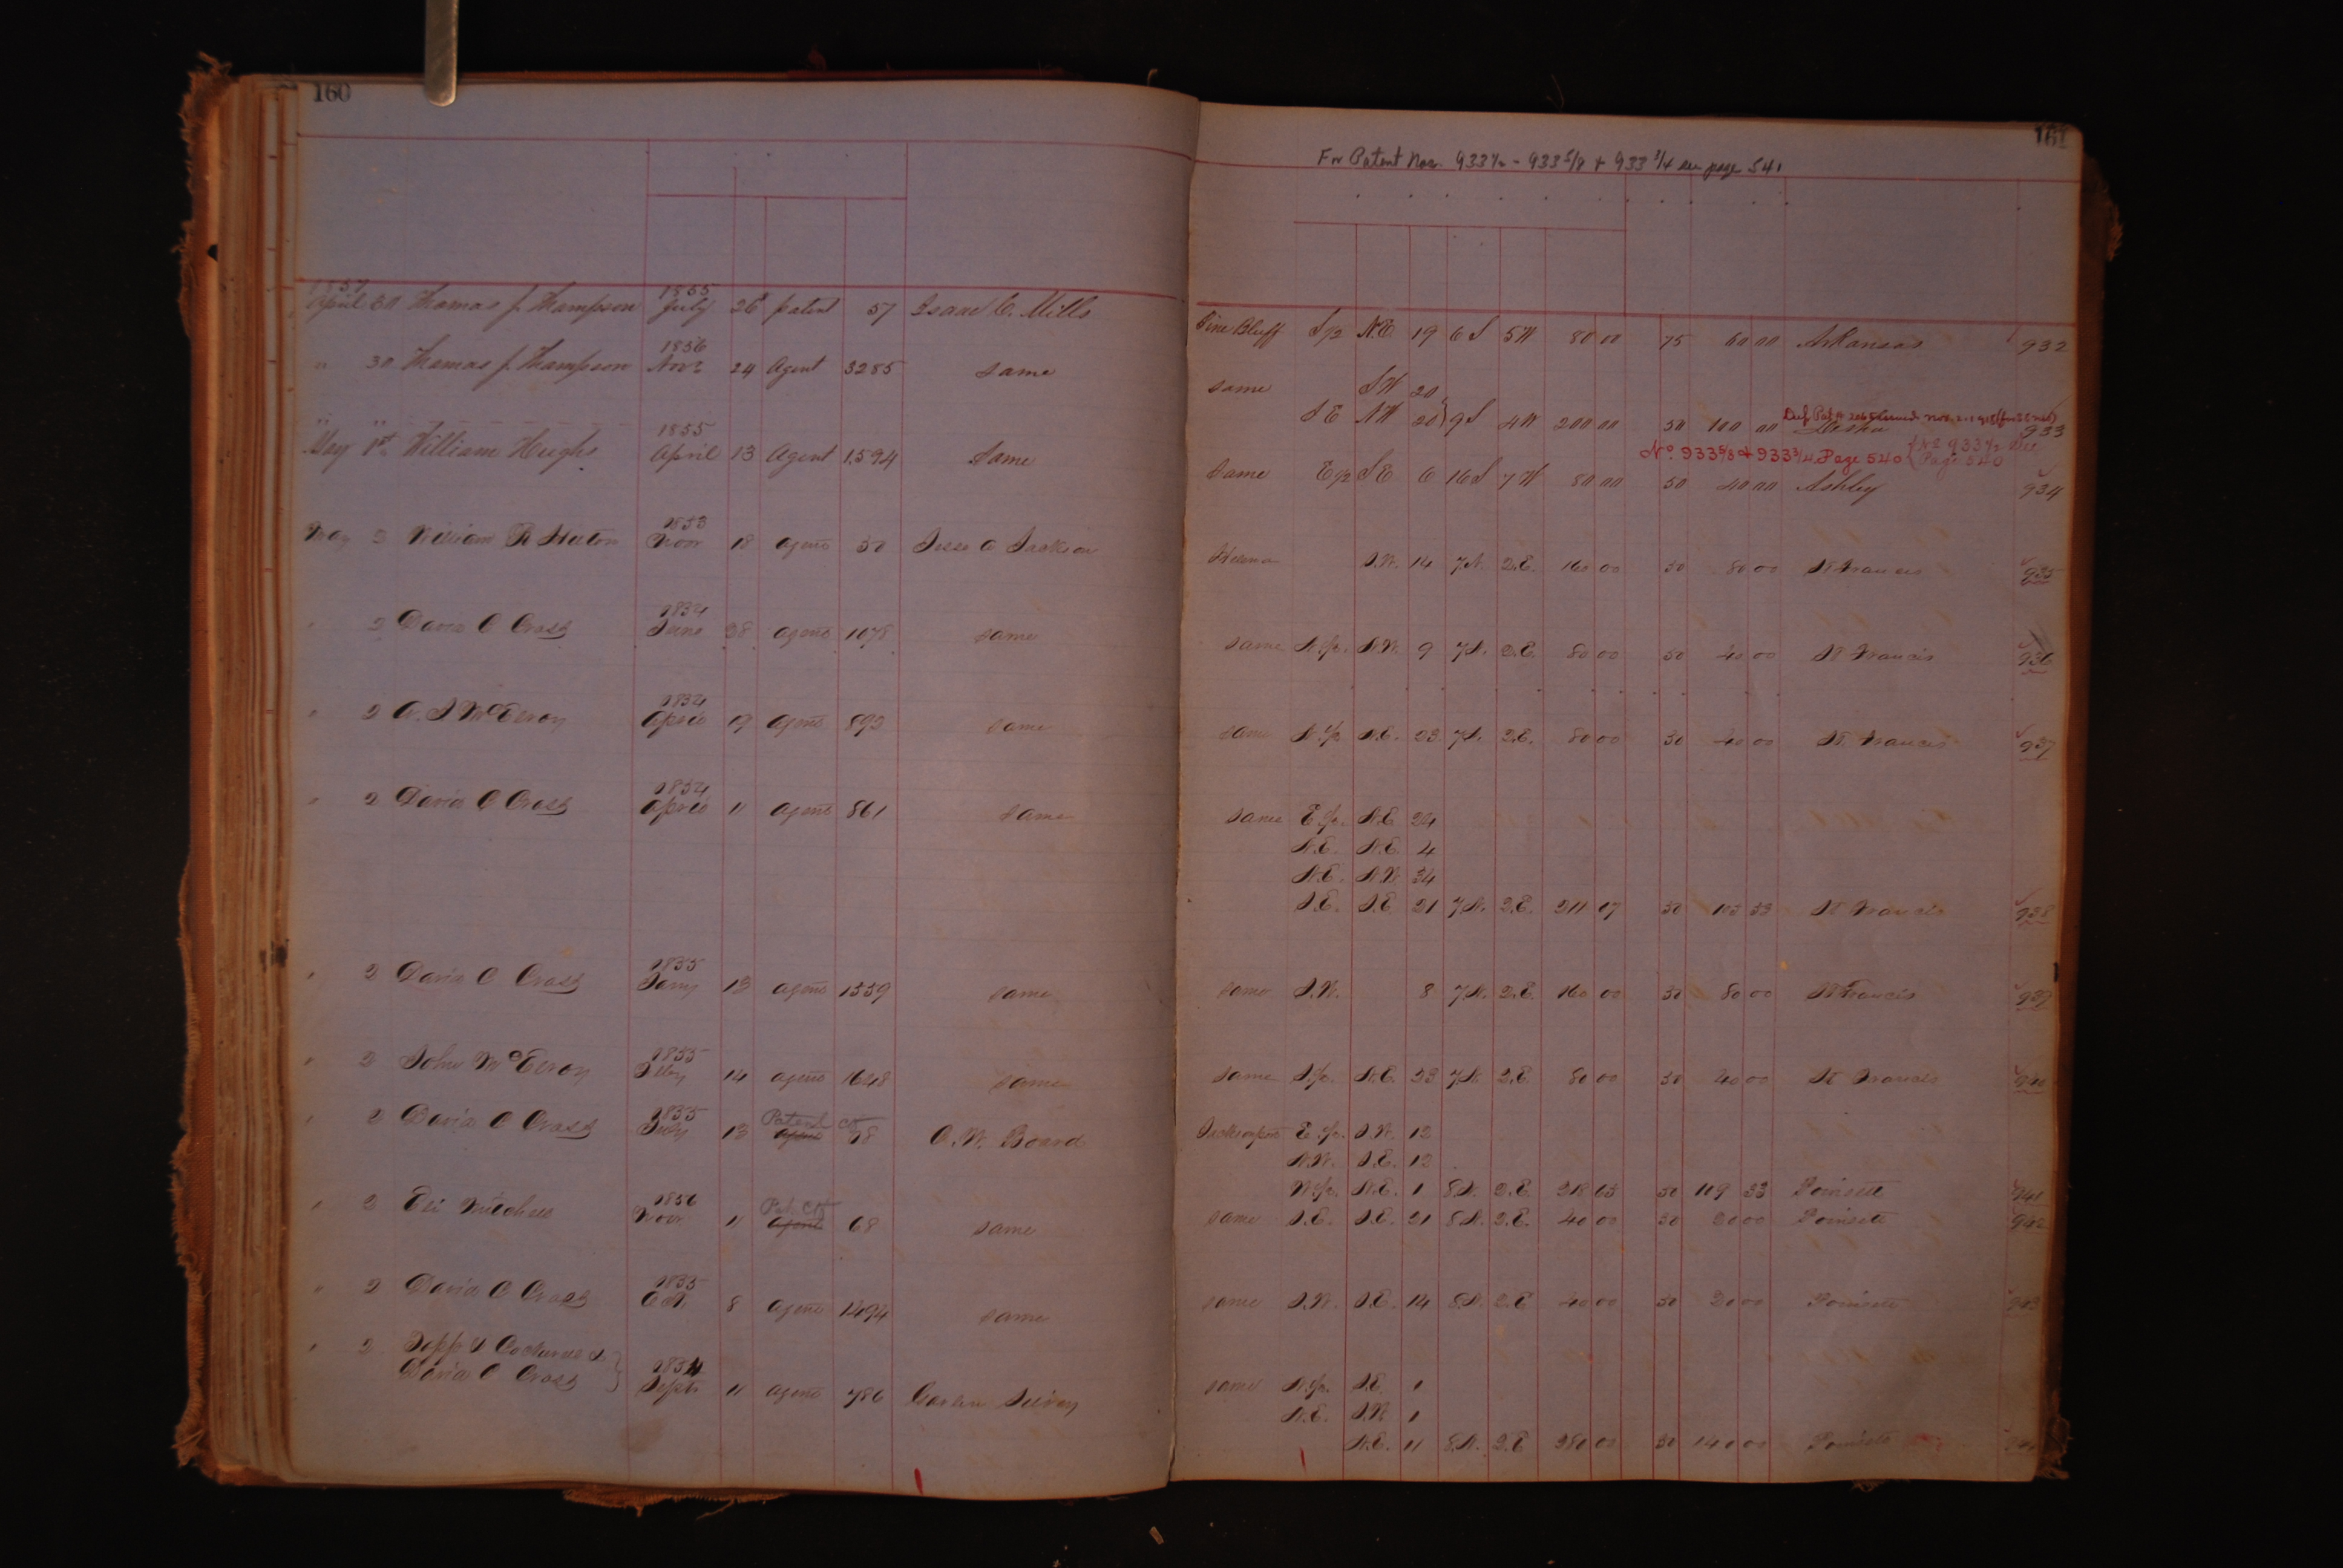 160
161
For Patent Nos. 933½ - 933 5/8 + 933 3/4 see page 541
1857 1855
April 30 Thomas J. Thompson July 26 patent 57 Isaac C. Mills Pine Bluff S ½ N.E. 19 6 S 5 W 80 00 75 60 00 Arkansas 932
1856
" 30 Thomas J. Thompson Nov 24 Agent 3285 same same S W 20
S E N W 20 } 9 S 4 W 200 00 50 100 00 Desha 933
No. 933 5/8 + 933 3/4 Page 540 { No 933 ½ See Page 540
1855
May 1st William Hughs April 13 Agent 1594 Same Same E ½ S E 6 16 S 7 W 80 00 50 40 00 Ashley 934
1853
May 2 William R Hutton Novr 18 agent 50 Jesse A Jackson Helena S.W. 14 7 N. 2.E. 160 00 50 80 00 St Francis 935
1854
" 2 David C Cross June 28 agent 1078 same same N.½. N.W. 9 7 N. 2.E. 80 00 50 40 00 St Francis 936
1854
" 2 A. S McElroy April 19 agent 892 same same N.½ N.E. 23 7 N. 2.E. 80 00 50 40 00 St. Francis 937
1854
" 2 David C Cross April 11 agent 861 same same E.½. N.E. 24
N.E. N.E. 4
N.E. N.W. 34
S.E. S.E. 21 7 N. 2.E. 211 07 50 105 53 St Francis 938
1855
" 2 David C Cross Jany 13 agent 1559 same same S.W. 8 7 N. 2.E. 160 00 50 80 00 St Francis 939
1855
" 2 John McElroy Feby 14 agent 1628 same same S.½. N.E. 23 7 N. 2.E. 80 00 50 40 00 St Francis 940
1855 Patent Cft
" 2 David C Cross July 13 agent 58 A. W. Board Jacksonport E.½. S.W. 12
N.W. S.E. 12
W.½. N.E. 1 8 N. 2.E. 218 65 50 109 33 Poinsett 941
1856 Pat. Cft
" 2 Eli Mitchell Novr 11 agent 68 same same S.E. S.E. 21 8 N. 2.E. 40 00 50 20 00 Poinsett 942
1855
" 2 David C Cross Oct 8 agent 1494 same same S.W. S.E. 14 8 N. 2.E 40 00 50 20 00 Poinsett 943
" 2 &
David C Cross } 1854 Septr 11 agent 786 same N.½. S.E. 1
N.E. S.W. 1
N.E. 11 8 N. 2.E 280 00 50 140 00 Poinsett